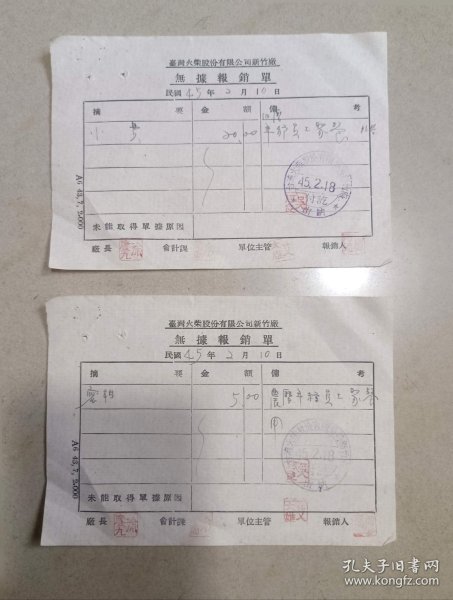 臺灣火柴股份有限公司新竹廠
無據報銷單
民國45年2月10日
摘 要 金 額 備 考
20.00 年節員工聚餐
45.2.18
付訖
未能取得單據原因
廠長 會計課 單位主管 報銷人
A6 43,7, 5.000
臺灣火柴股份有限公司新竹廠
無據報銷單
民國45年2月10日
摘 要 金 額 備 考
5.00 農曆年節員工聚餐
用
45.2.18
未能取得單據原因
廠長 會計課 單位主管 報銷人
A6 43,7, 5.000
孔夫子旧书网
book.kongfz.com